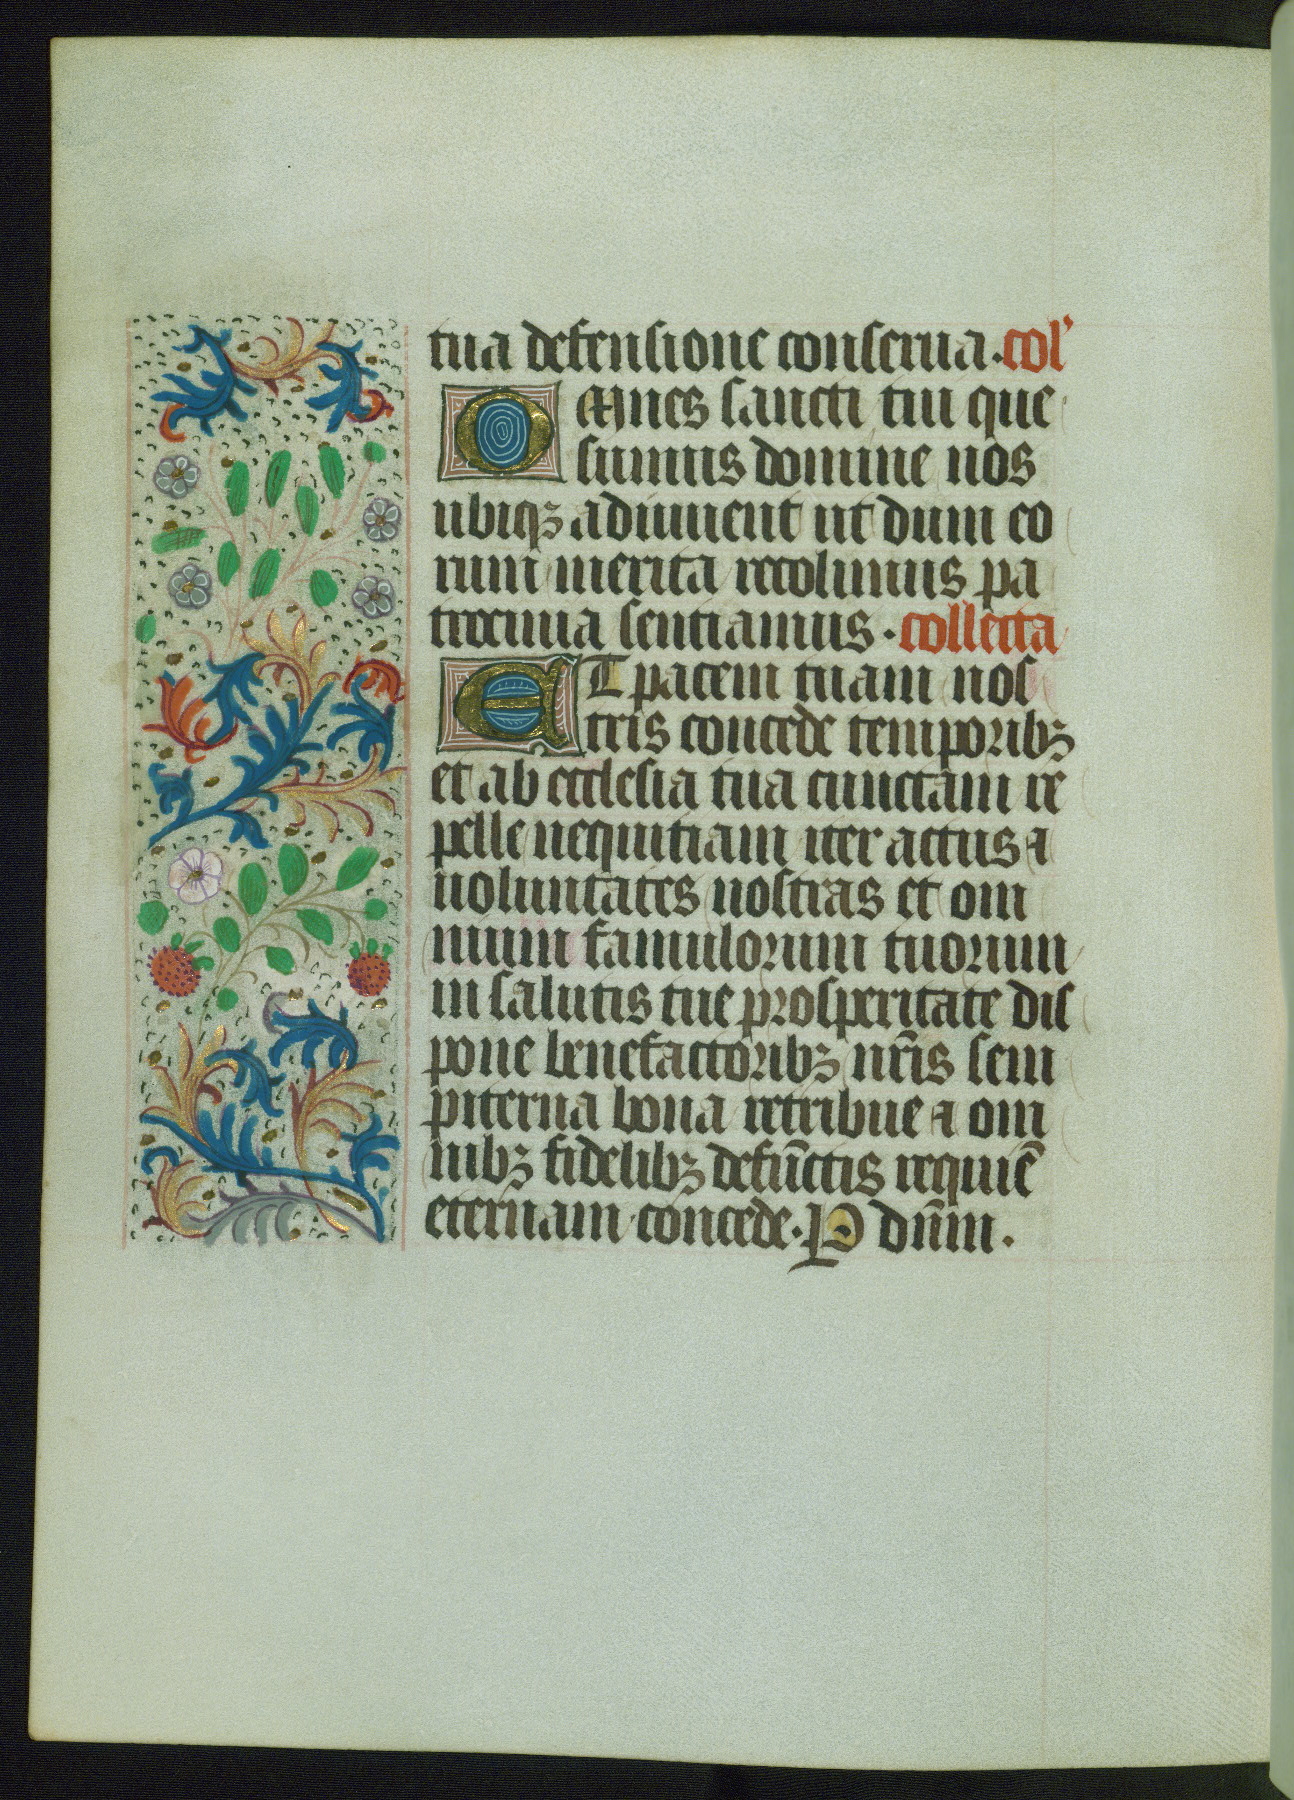 tua defensione conserua. col'
OMnes sancti tui que
sumus domine nos
ubiqꝫ adiuuent ut dum eo
rum merita recolimus pa
trocinia sentiamus. collecta
ET pacem tuam nos
tris concede temporibꝫ
et ab ecclesia tua cunctam re
pelle nequitiam iter actus ⁊
uoluntates nostras et om
nium famulorum tuorum
in salutis tue prosperitate dis
pone benefactoribꝫ nr̄is sem
piterna bona retribue ⁊ om
nibꝫ fidelibꝫ defūctis requiē
eternam concede. P dn̄m.